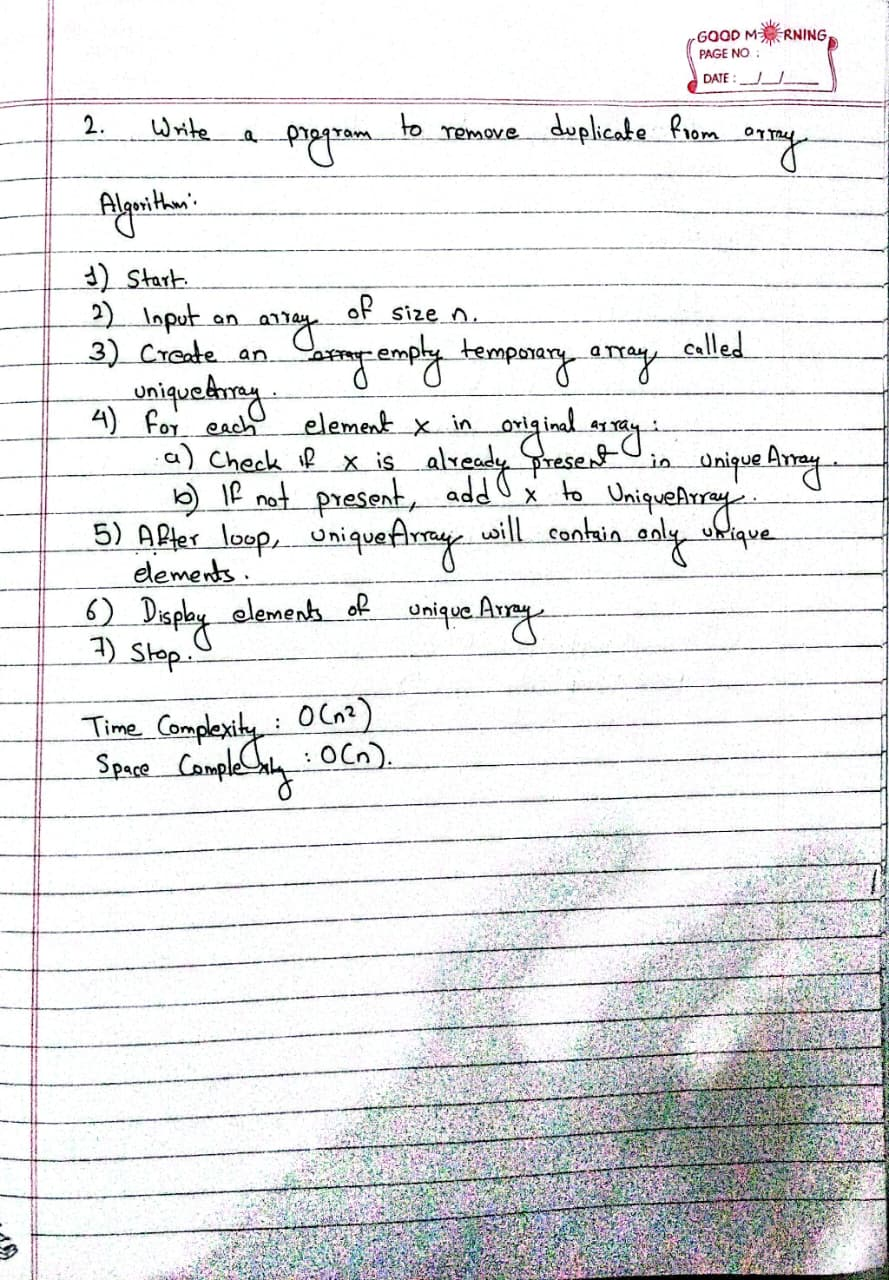 GOOD MORNING
PAGE NO :
DATE : / /
2. Write a program to remove duplicate from array
Algorithm:
1) Start.
2) Input an array of size n.
3) Create an array empty temporary array called
uniqueArray.
4) For each element x in original array:
a) Check if x is already present in UniqueArray.
b) If not present, add x to UniqueArray.
5) After loop, UniqueArray will contain only unique
elements.
6) Display elements of uniqueArray
7) Stop.
Time Complexity : O(n²)
Space Complexity : O(n).